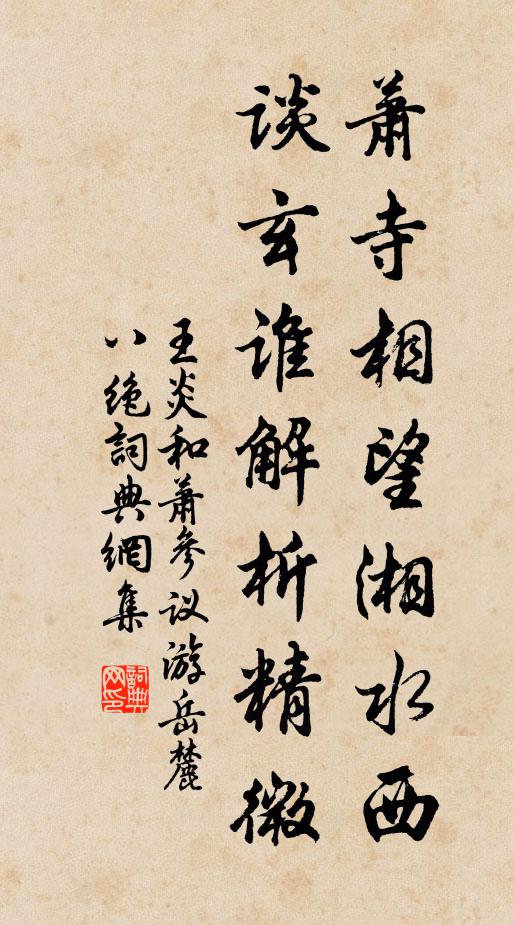 萧寺相望湘水西
谈玄谁解析精微
王炎和萧参议游岳麓
八绝詞典網集
詞典网印